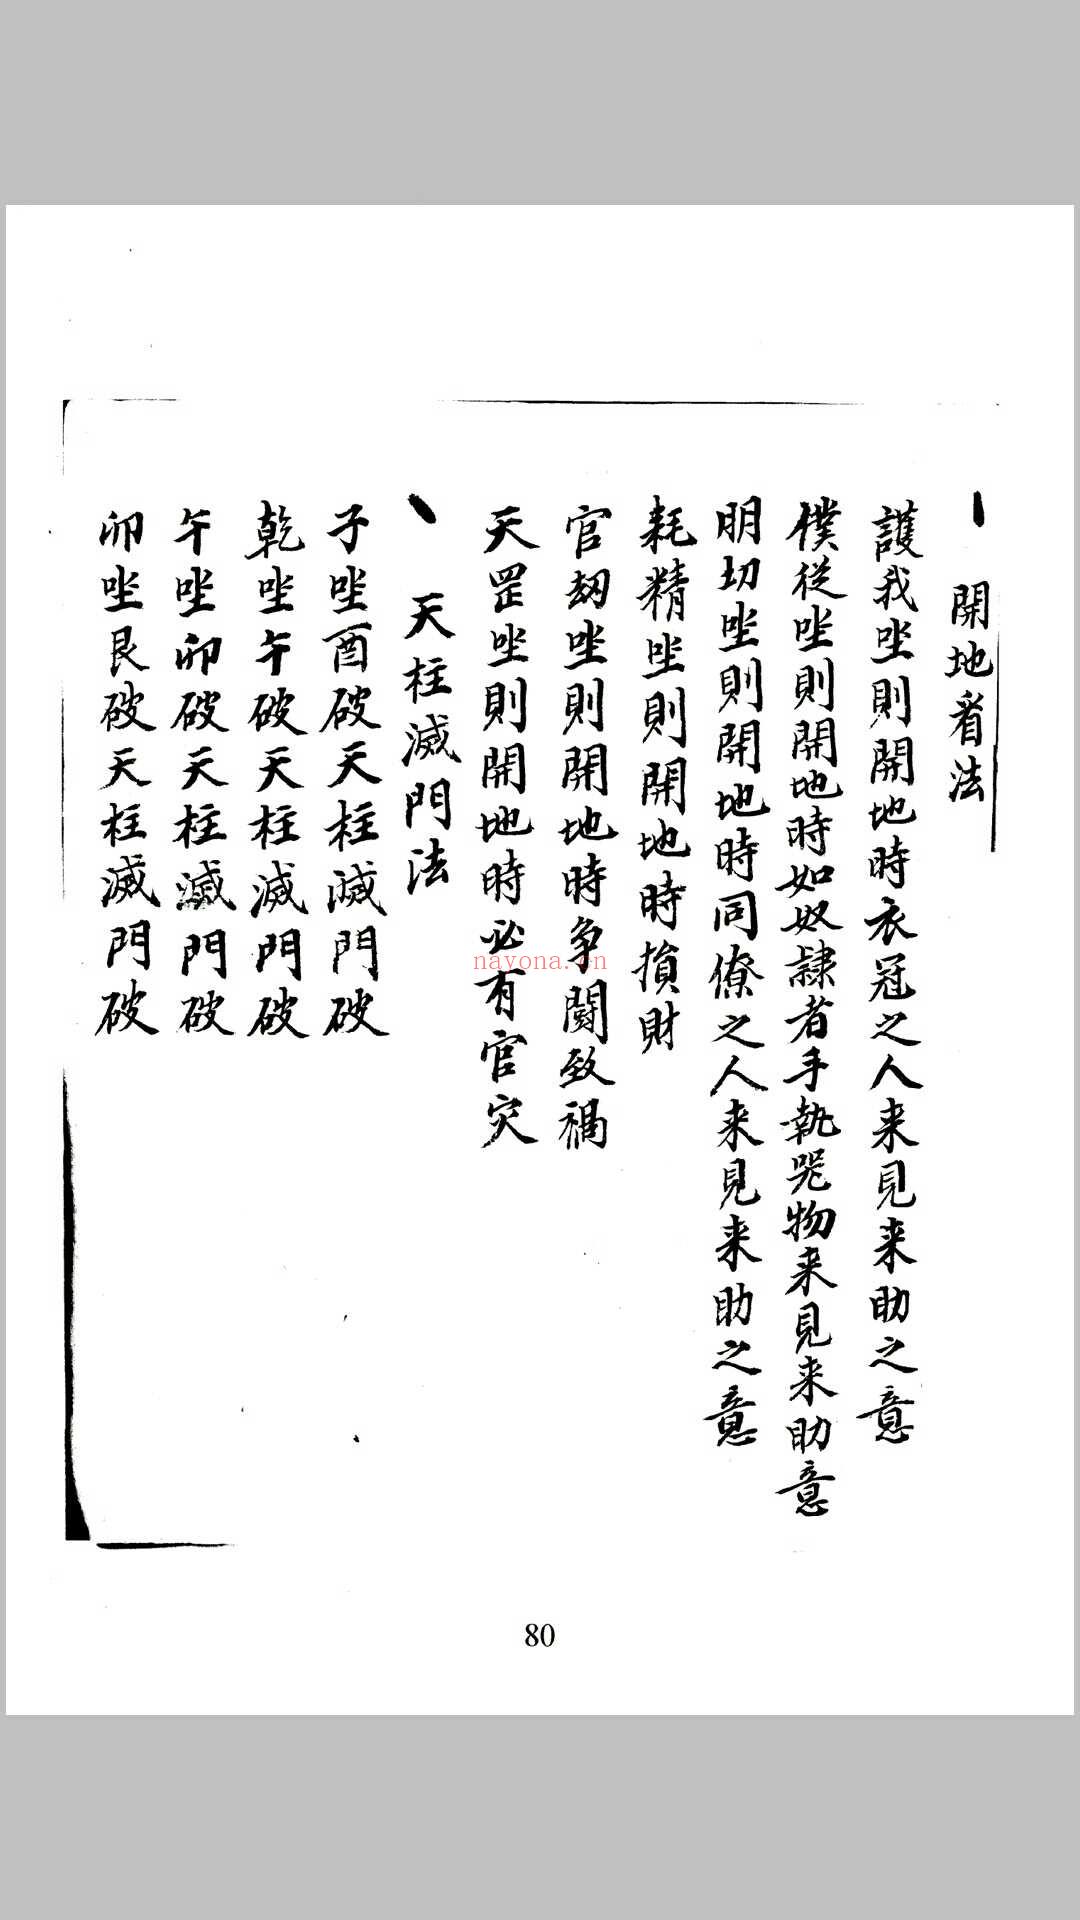 開地看法
護我坐則開地時衣冠之人来見来助之意
僕従坐則開地時如奴隷者手執器物来見来助意
明切坐則開地時同僚之人来見来助之意
耗精坐則開地時損財
官劫坐則開地時争鬪致禍
天罡坐則開地時必有官灾
天柱滅門法
子坐酉破天柱滅門破
乾坐午破天柱滅門破
午坐卯破天柱滅門破
卯坐艮破天柱滅門破
nayona.cn
80